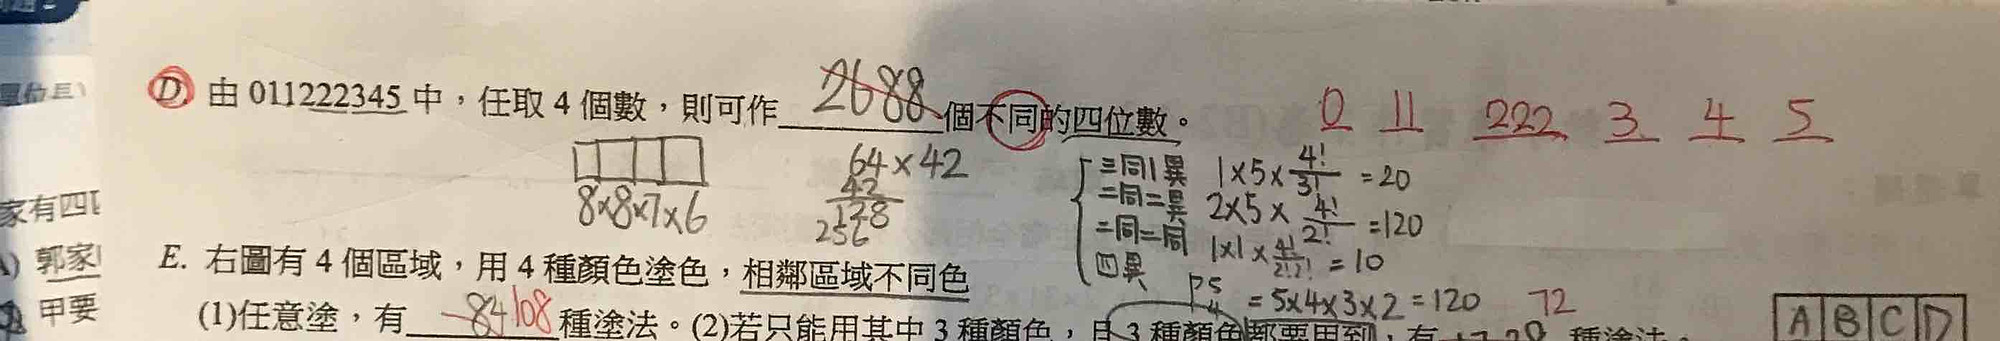 D. 由 011222345 中，任取 4 個數，則可作 2688 個不同的四位數。 0 11 222 3 4 5
8×8×7×6
64×42
42
128
256
三同1異 1×5×4!/3! =20
二同二異 2×5×4!/2! =120
二同二同 1×1×4!/2!2! =10
四異 P5 4 =5×4×3×2=120 72
家有四
E. 右圖有 4 個區域，用 4 種顏色塗色，相鄰區域不同色
郭家
(1)任意塗，有 84 108 種塗法。(2)若只能用其中 3 種顏色，且 3 種顏色都要用到，有 種塗法。
甲要
A B C D